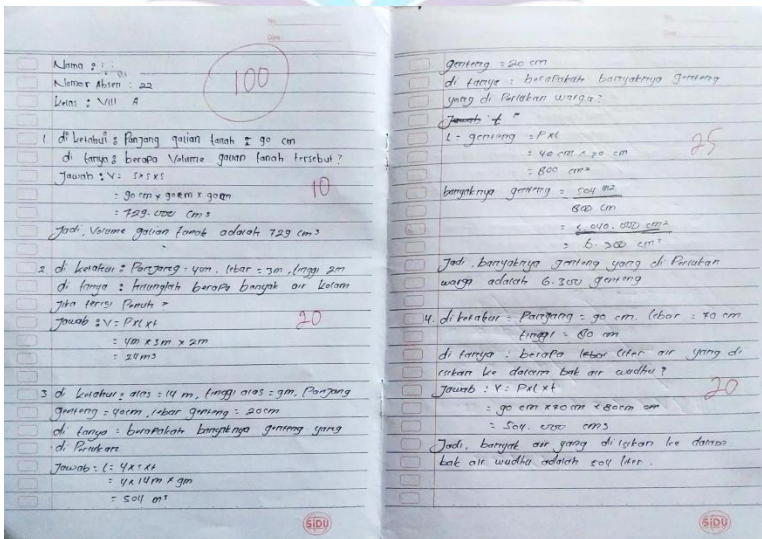 Nama :
Nomor Absen : 22
Kelas : VIII A
100
1 di ketahui : Panjang galian tanah = 90 cm
di tanya : berapa Volume galian tanah tersebut ?
Jawab : V = S x S x S
= 90 cm x 90 cm x 90 cm
= 729.000 cm3
10
Jadi, Volume galian tanah adalah 729 cm3
2 di ketahui : Panjang = 4 cm, lebar = 3m, tinggi 2m
di tanya : hitunglah berapa banyak air kolam
jika terisi Penuh ?
Jawab : V = P x l x t
20
= 4m x 3m x 2m
= 24 m3
3 di ketahui : alas = 14 m, tinggi alas = 9m, Panjang
genteng = 40cm, lebar genteng = 20cm
di tanya : berapakah banyaknya genteng yang
di Perlukan
Jawab : L =
= 4 x 14m x 9m
= 504 m2
SIDU
No.
Date
genteng = 20 cm
di tanya : berapakah banyaknya genteng
yang di Perlukan warga ?
Jawab :
L = genteng = P x l
= 40 cm x 20 cm
25
= 800 cm2
banyaknya genteng = 504 m2
800 cm
= 5.040.000 cm2
= 6.300 cm2
Jadi, banyaknya genteng yang di Perlukan
warga adalah 6.300 genteng
4. di ketahui = Panjang = 90 cm, lebar = 70 cm
tinggi = 80 cm
di tanya : berapa liter air yang di
isikan ke dalam bak air wudhu ?
Jawab : V = P x l x t
20
= 90 cm x 70 cm x 80 cm
= 504.000 cm3
Jadi, banyak air yang di isikan ke dalam
bak air wudhu adalah 504 liter.
SIDU